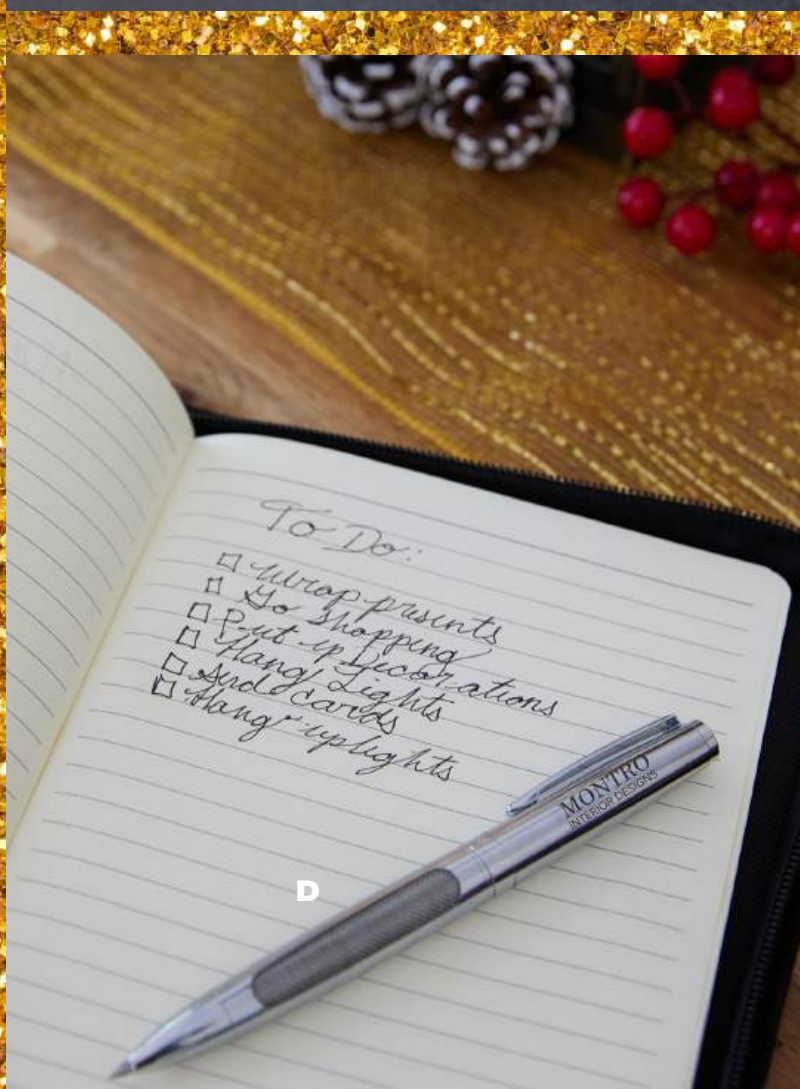 To Do:
Wrap presents
Go Shopping
Put up Decorations
Hang Lights
Send cards
Hang up lights
MONTRO
INTERIOR DESIGNS
D